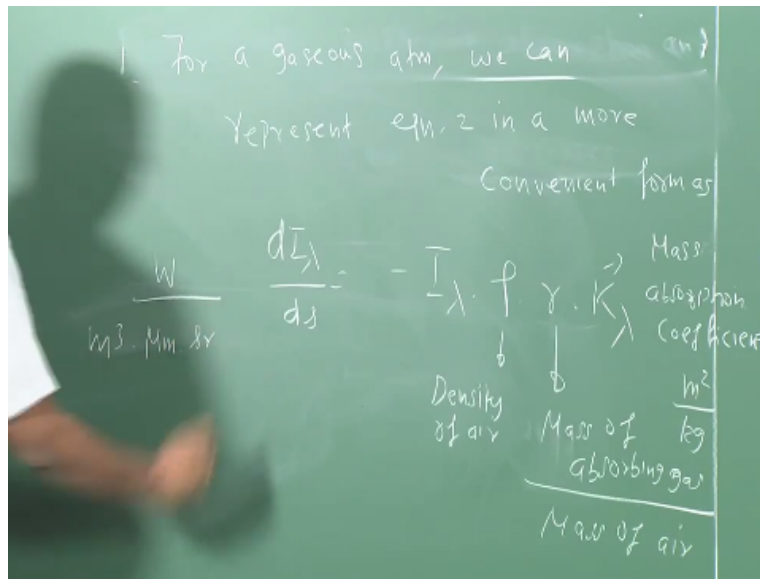 1. For a gaseous atm, we can
represent eqn. 2 in a more
Convenient form as
W / m3. μm Sr
dIλ / ds = - Iλ . ρ . γ . Kλ
Mass
absorption
Coefficient
m² / kg
Density
of air
Mass of
absorbing gas
Mass of air